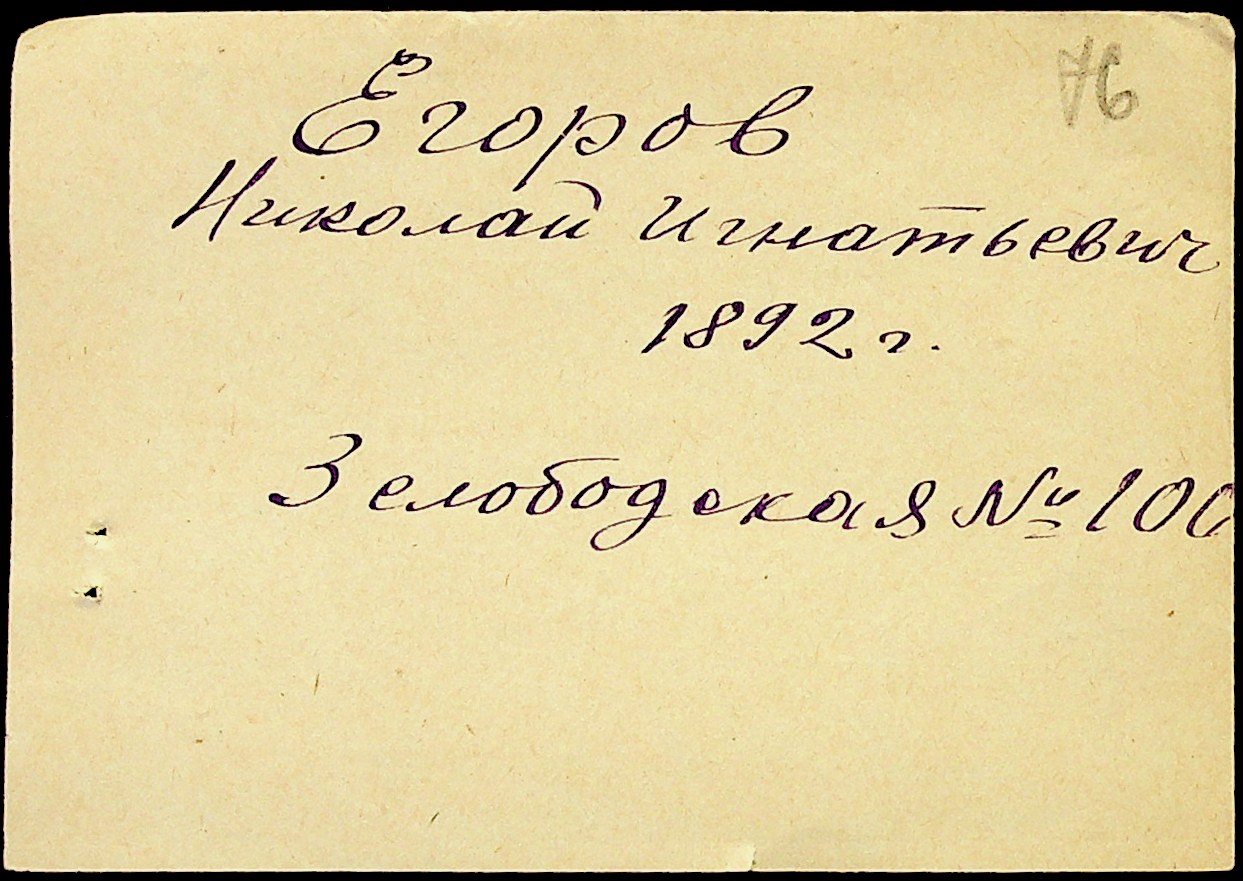 76
Егоров
Николай Игнатьевич
1892 г.
Зелободская № 100